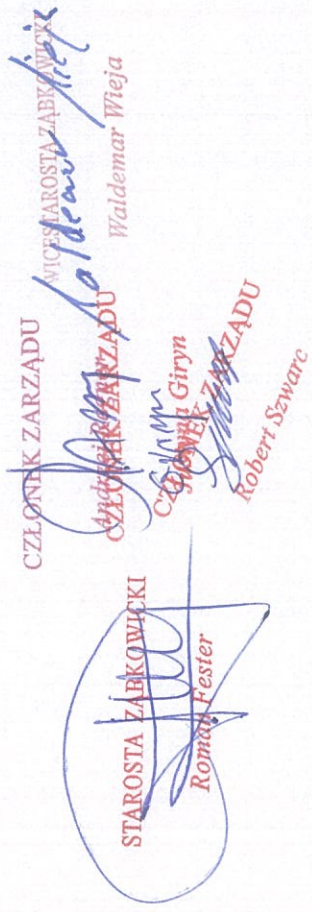 STAROSTA ZĄBKOWICKI
Roman Fester
CZŁONEK ZARZĄDU
CZŁONEK ZARZĄDU
Giryn
CZŁONEK ZARZĄDU
Robert Szwarc
WICESTAROSTA ZĄBKOWICKI
Waldemar Wieja